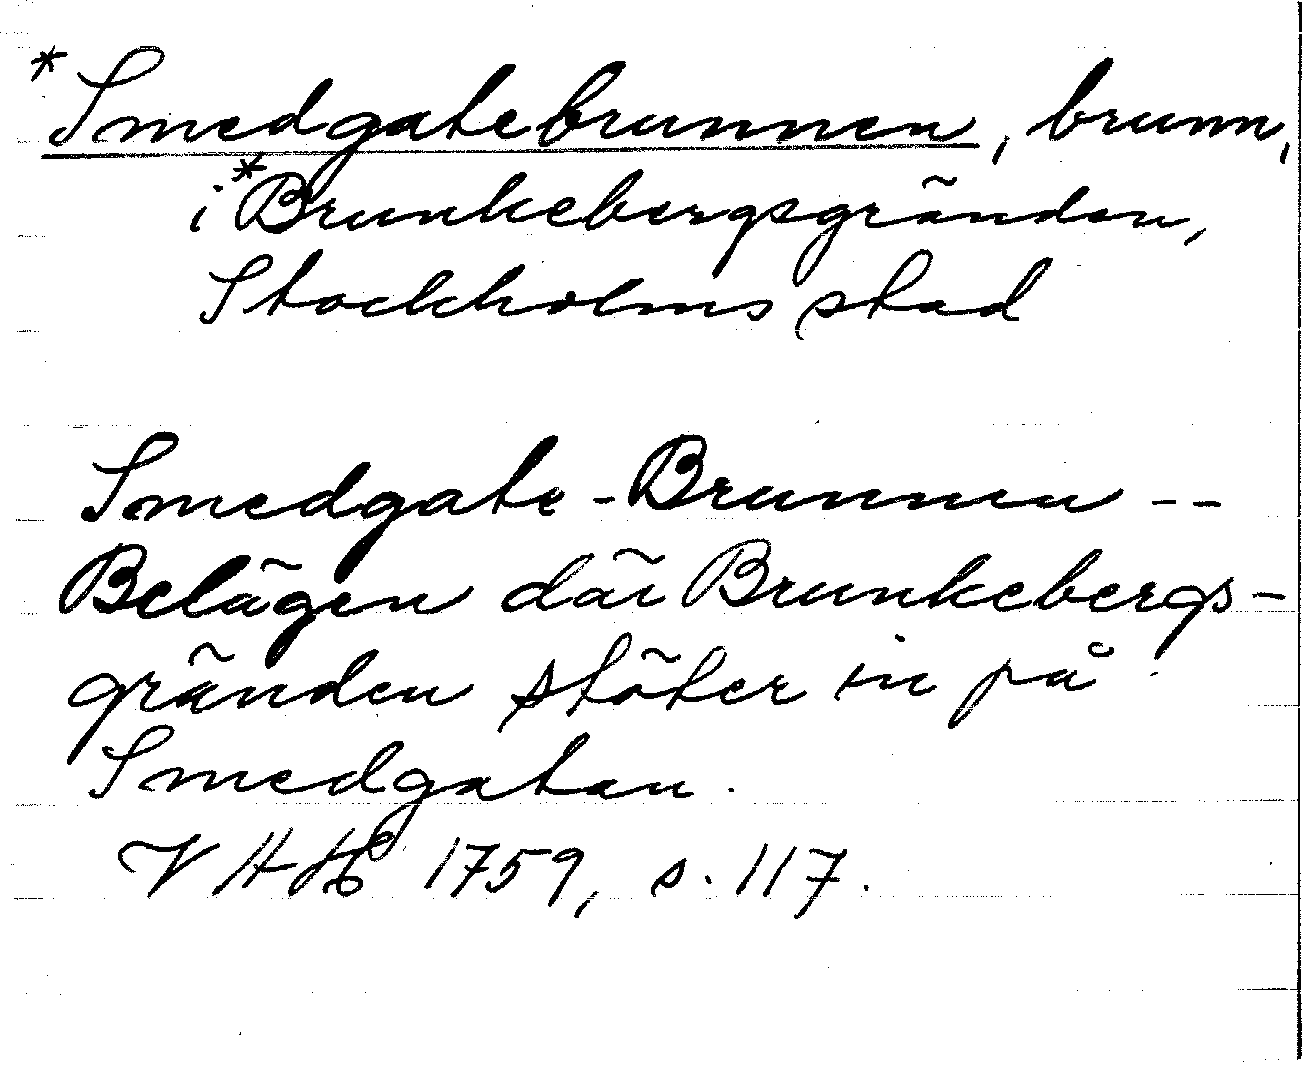 *Smedgatebrunnen, brunn,
i *Brunkebergsgränden,
Stockholms stad
Smedgate-Brunnen --
Belägen där Brunkebergs-
gränden stöter in på
Smedgatan.
VHAH 1759, s. 117.